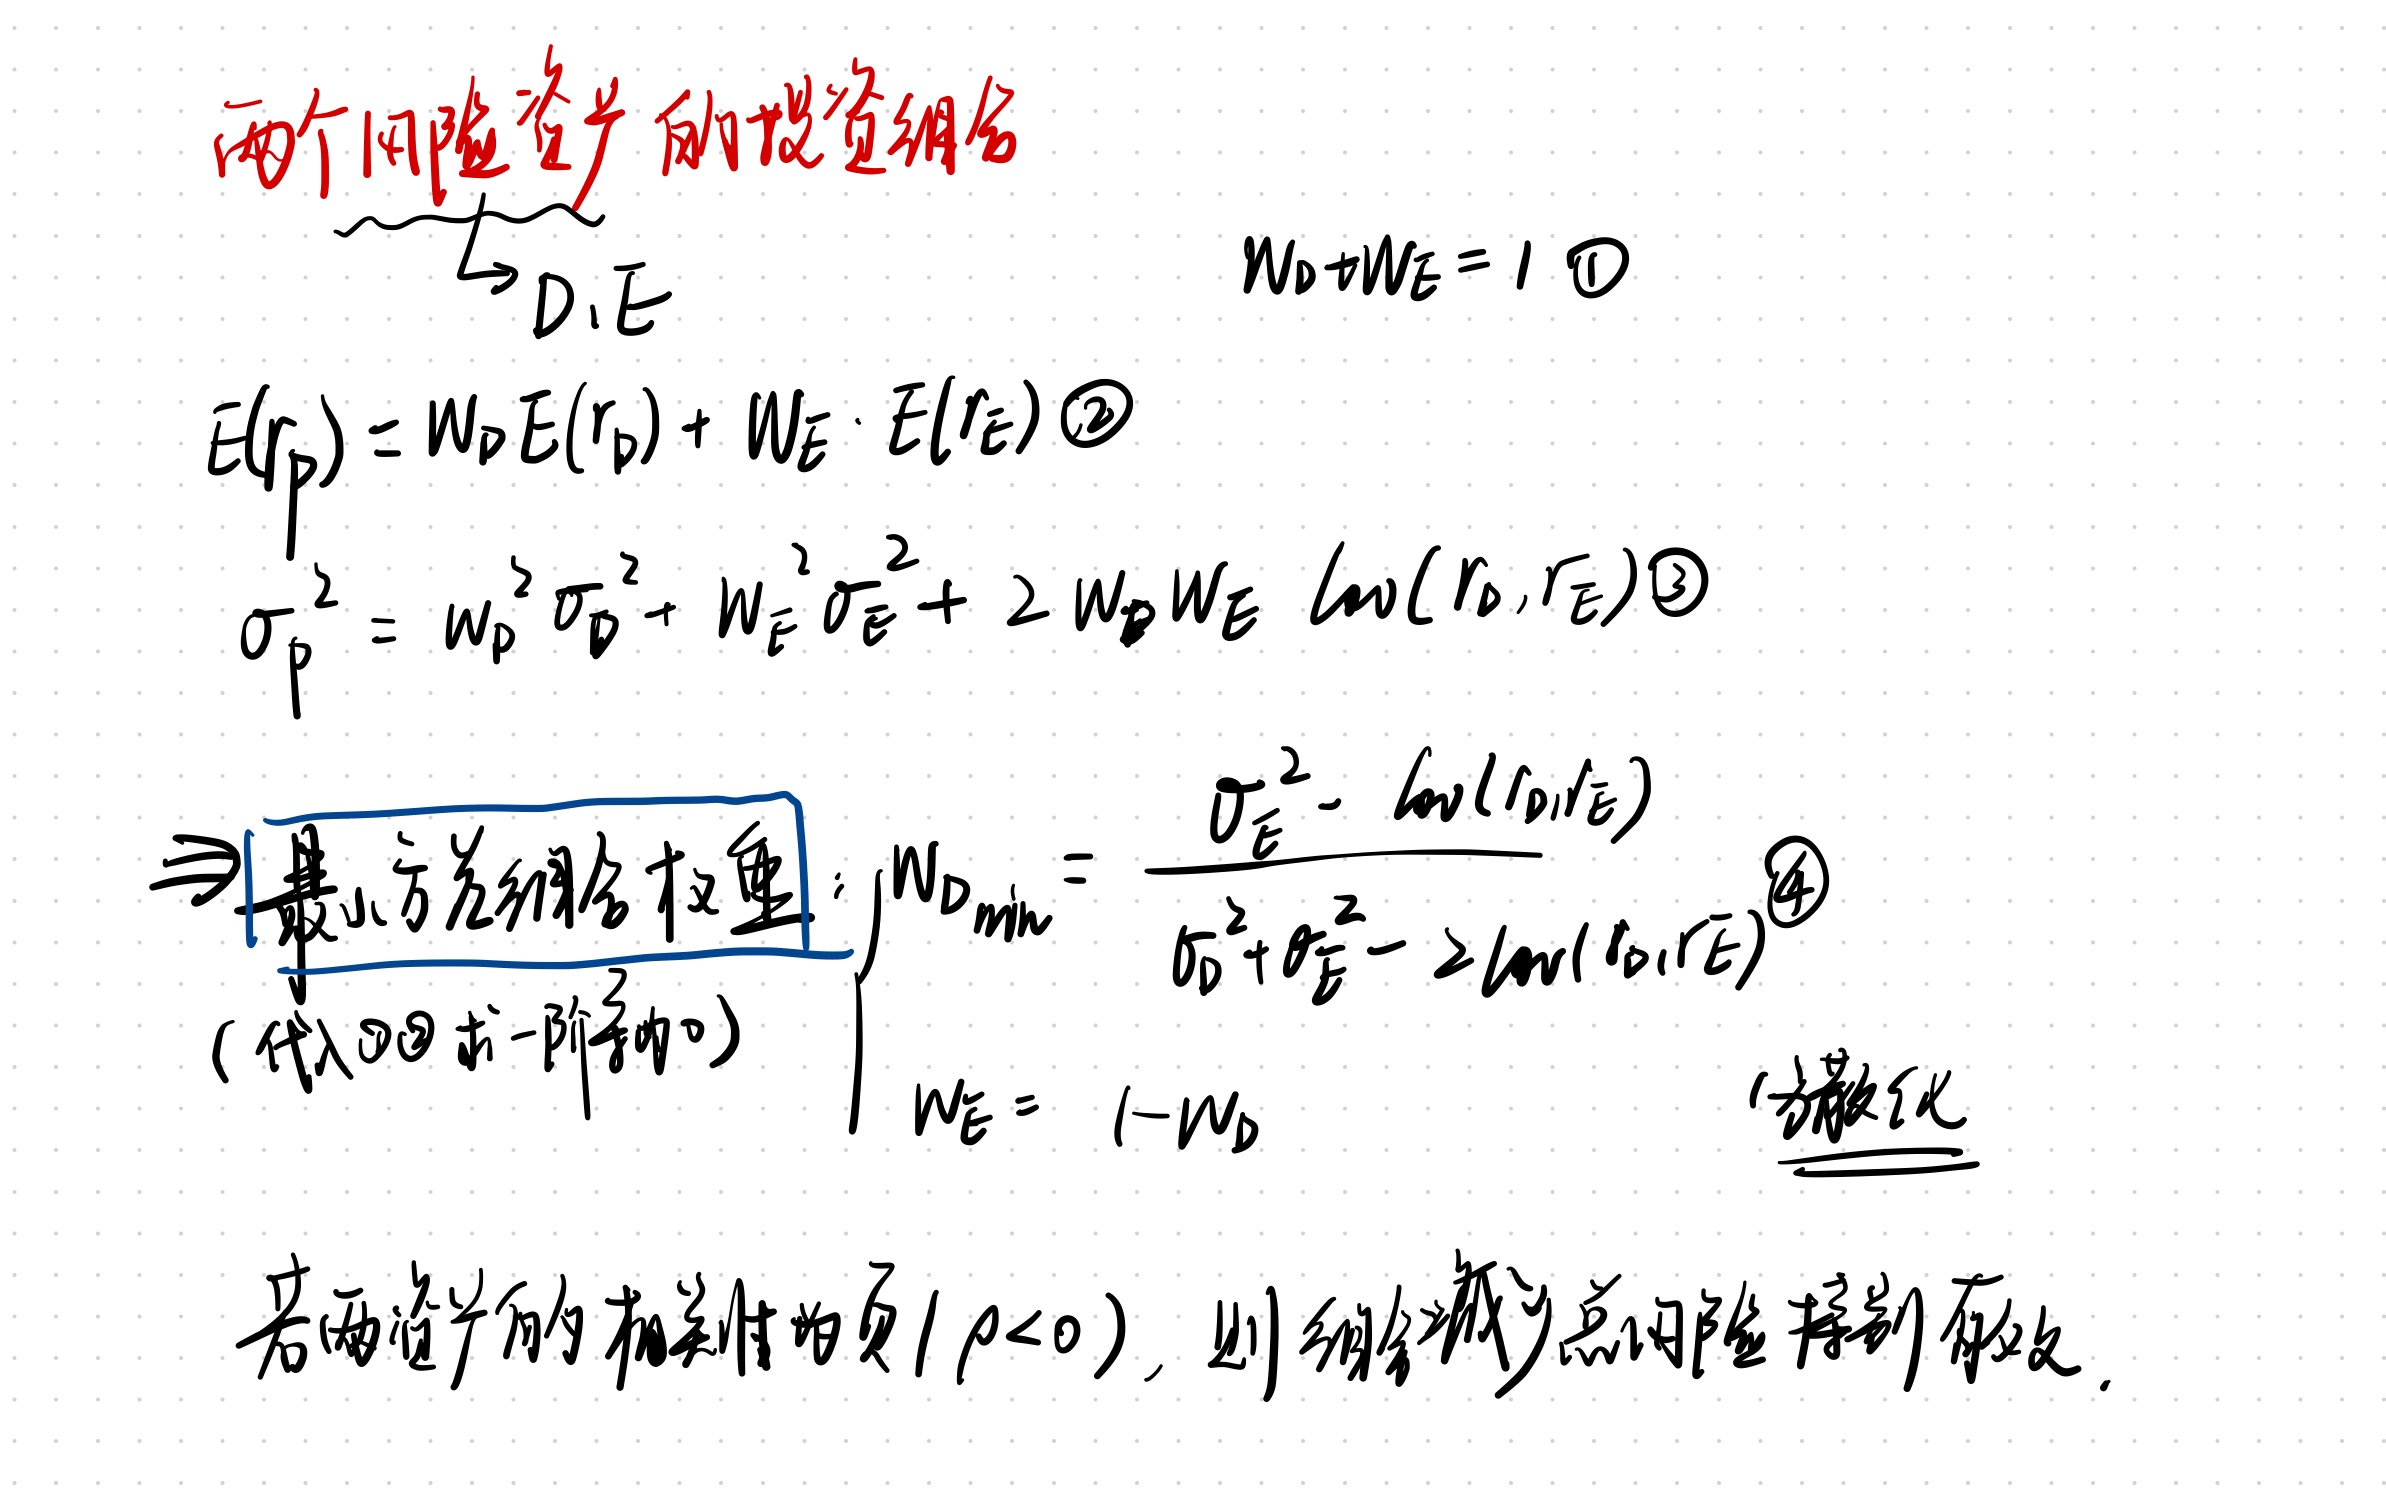 两个风险资产的投资组合
D、E
W_D + W_E = 1 ①
E(r_p) = W_D E(r_D) + W_E · E(r_E) ②
σ_p² = W_D² σ_D² + W_E² σ_E² + 2 W_D W_E Cov(r_D, r_E) ③
⇒ 最小方差组合权重 : { W_D min = (σ_E² - Cov(r_D, r_E)) / (σ_D² + σ_E² - 2Cov(r_D, r_E)) ④
(代入①③求一阶导为0)
W_E = 1 - W_D
分散化
若两资产的相关性为负(ρ<0), 则组合的总风险得到有效.